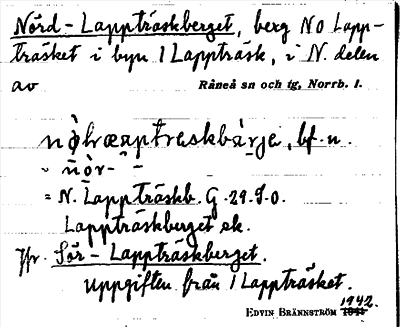 Nörd-Lappträskberget, berg NO Lapp-
träsket i byn 1 Lappträsk, i N. delen
av Råneå sn och tg, Norrb. l.
bf. n.
= N. Lappträskb. G.-29.9.0.
Lappträskberget ek.
Jfr. Sör-Lappträskberget.
Uppgiften från 1 Lappträsket.
1942.
EDVIN BRÄNNSTRÖM 1941